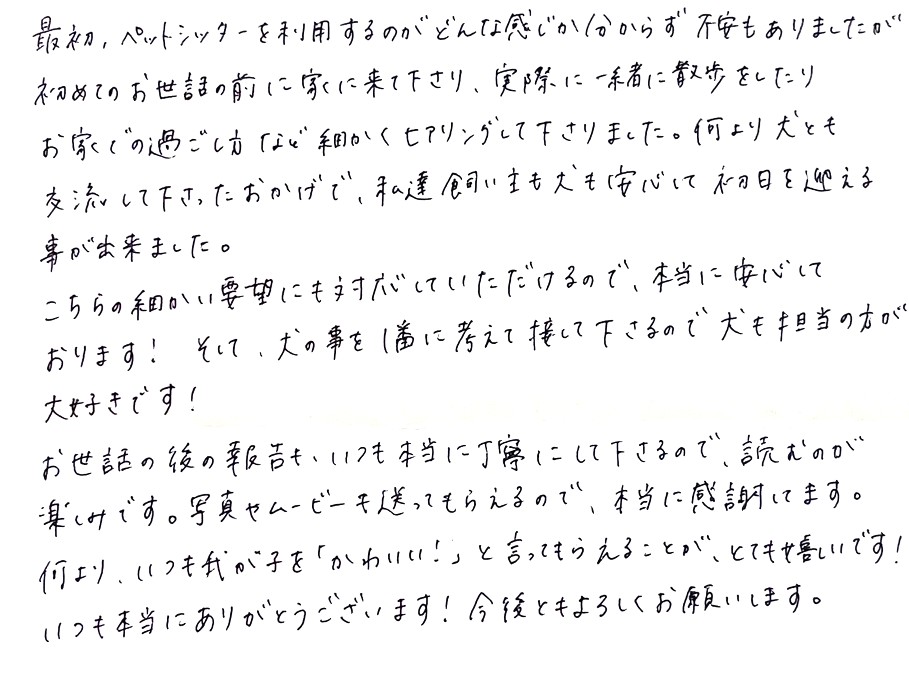 最初、ペットシッターを利用するのがどんな感じか分からず不安もありましたが
初めてのお世話の前に家に来て下さり、実際に一緒に散歩をしたり
お家での過ごし方など細かくヒアリングして下さりました。何より犬とも
交流して下さったおかげで、私達飼い主も犬も安心して初日を迎える
事が出来ました。
こちらの細かい要望にも対応していただけるので、本当に安心して
おります! そして、犬の事を1番に考えて接して下さるので犬も担当の方が
大好きです!
お世話の後の報告も、いつも本当に丁寧にして下さるので、読むのが
楽しみです。写真やムービーも送ってもらえるので、本当に感謝してます。
何より、いつも我が子を「かわいい!」と言ってもらえることが、とても嬉しいです!
いつも本当にありがとうございます!今後ともよろしくお願いします。